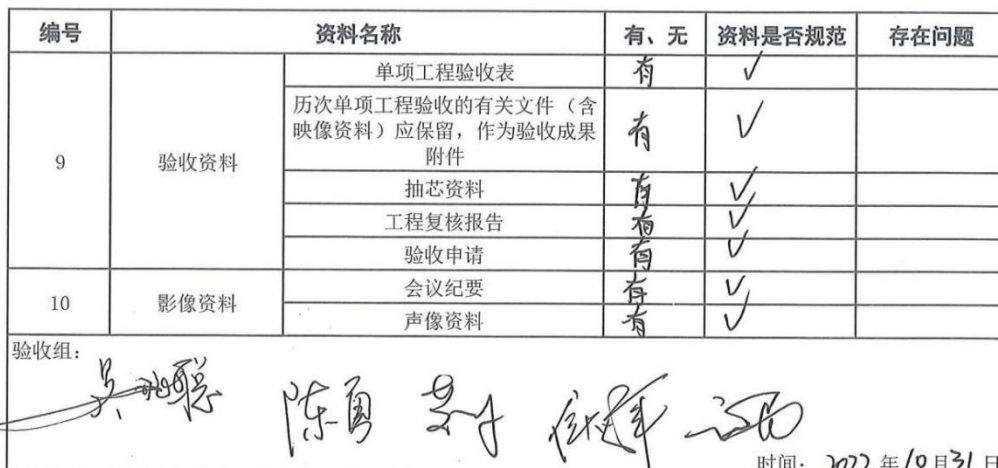 编号 资料名称 有、无 资料是否规范 存在问题
单项工程验收表 有 √
历次单项工程验收的有关文件（含
映像资料）应保留，作为验收成果
附件 有 √
9 验收资料
抽芯资料 有 √
工程复核报告 有 √
验收申请 有 √
会议纪要 有 √
10 影像资料
声像资料 有 √
验收组：
陈勇
时间： 2022 年 10 月 31 日